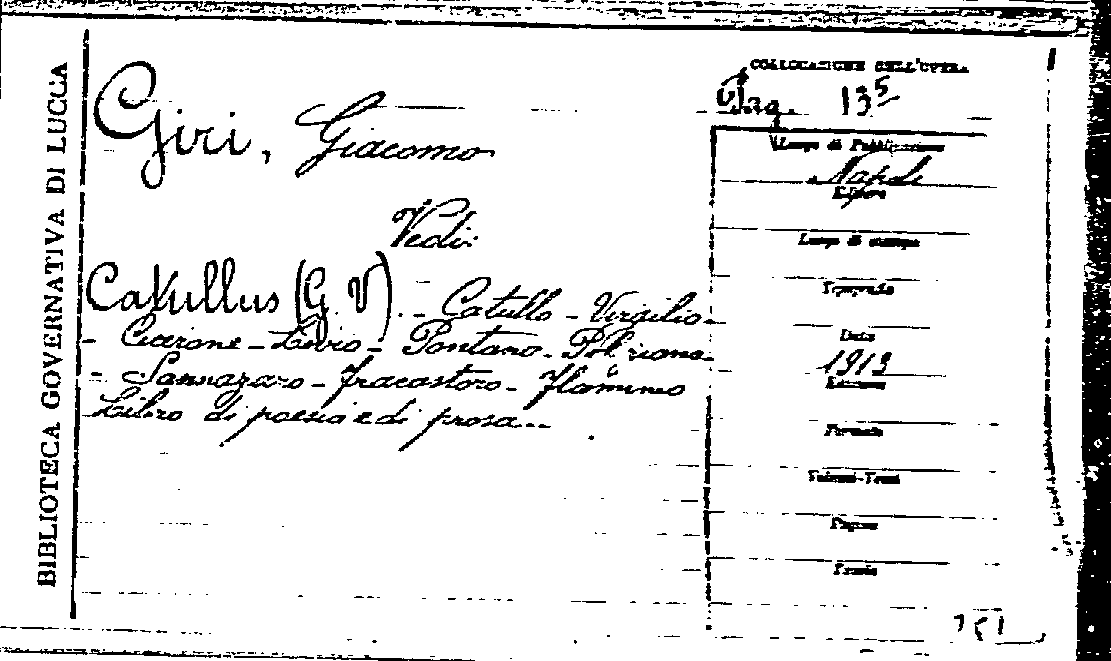 BIBLIOTECA GOVERNATIVA DI LUCCA
Giri, Giacomo
Vedi:
Catullus (G. V.) - Catullo - Virgilio -
- Cicerone - Livio - Pontano - Poliziano -
- Sannazaro - Fracastoro - Flaminio
Libro di poesia e di prosa...
COLLOCAZIONE DELL'OPERA
135
Luogo di Pubblicazione
Napoli
Editore
Luogo di stampa
Tipografo
Data
1913
Edizione
Formato
Volumi-Tomi
Pagine